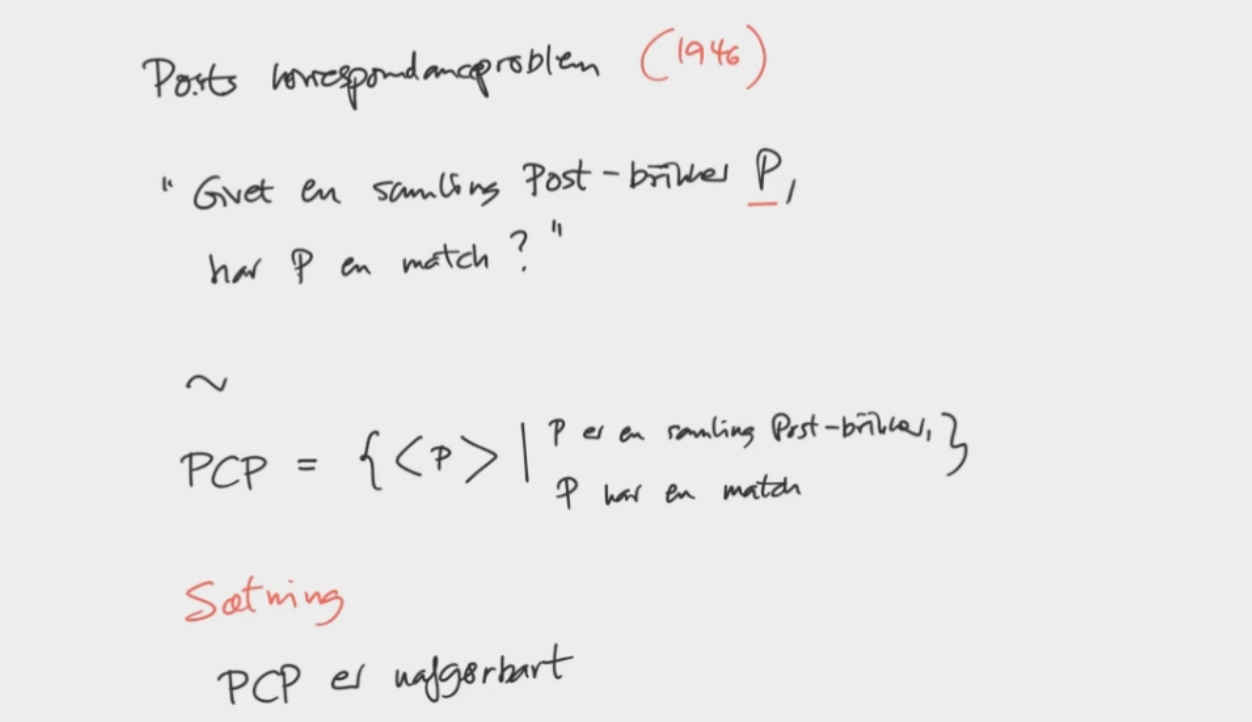 Posts korrespondanceproblem (1946)
"Givet en samling Post-brikker P,
har P en match?"
~
PCP = {<P> | P er en samling Post-brikker, }
P har en match
Sætning
PCP er uafgørbart